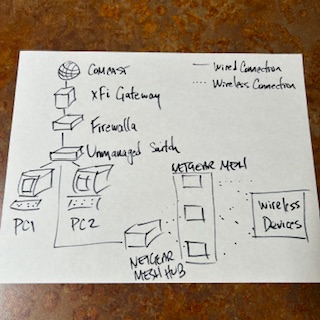 Comcast
Wired Connection
xFi Gateway
Wireless Connection
Firewalla
Unmanaged Switch
NETGEAR MESH
PC1
PC2
Wireless
Devices
NETGEAR
MESH HUB